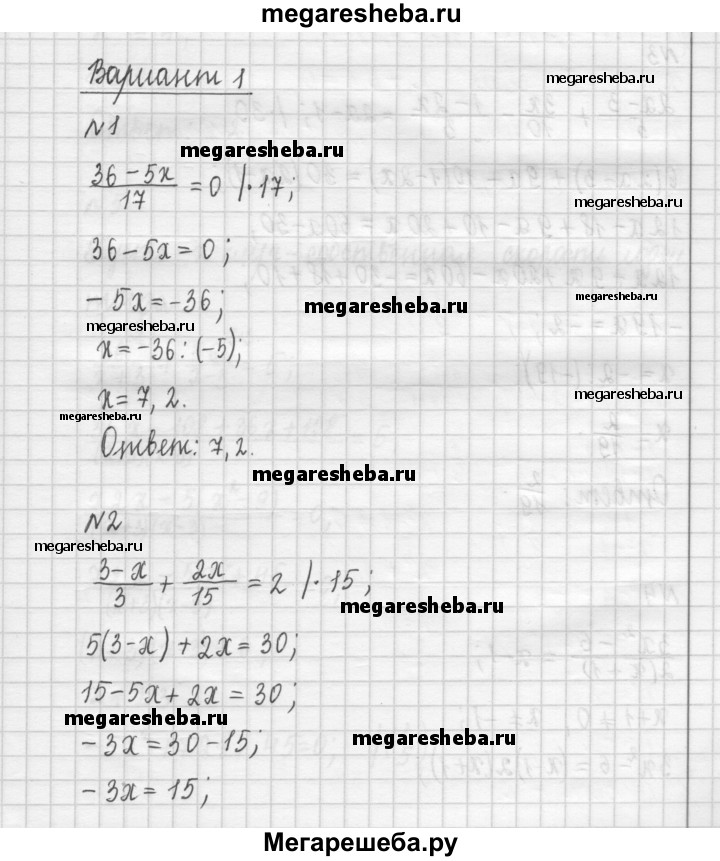 megaresheba.ru
Вариант 1
megaresheba.ru
№1
megaresheba.ru
(36 - 5x)/17 = 0 |·17;
megaresheba.ru
36 - 5x = 0;
- 5x = -36;
megaresheba.ru
megaresheba.ru
megaresheba.ru
x = -36 : (-5);
megaresheba.ru
x = 7,2.
megaresheba.ru
Ответ: 7,2.
megaresheba.ru
№2
megaresheba.ru
(3-x)/3 + 2x/15 = 2 |·15;
megaresheba.ru
5(3-x) + 2x = 30;
15 - 5x + 2x = 30;
megaresheba.ru
- 3x = 30 - 15;
megaresheba.ru
- 3x = 15;
Мегарешеба.ру